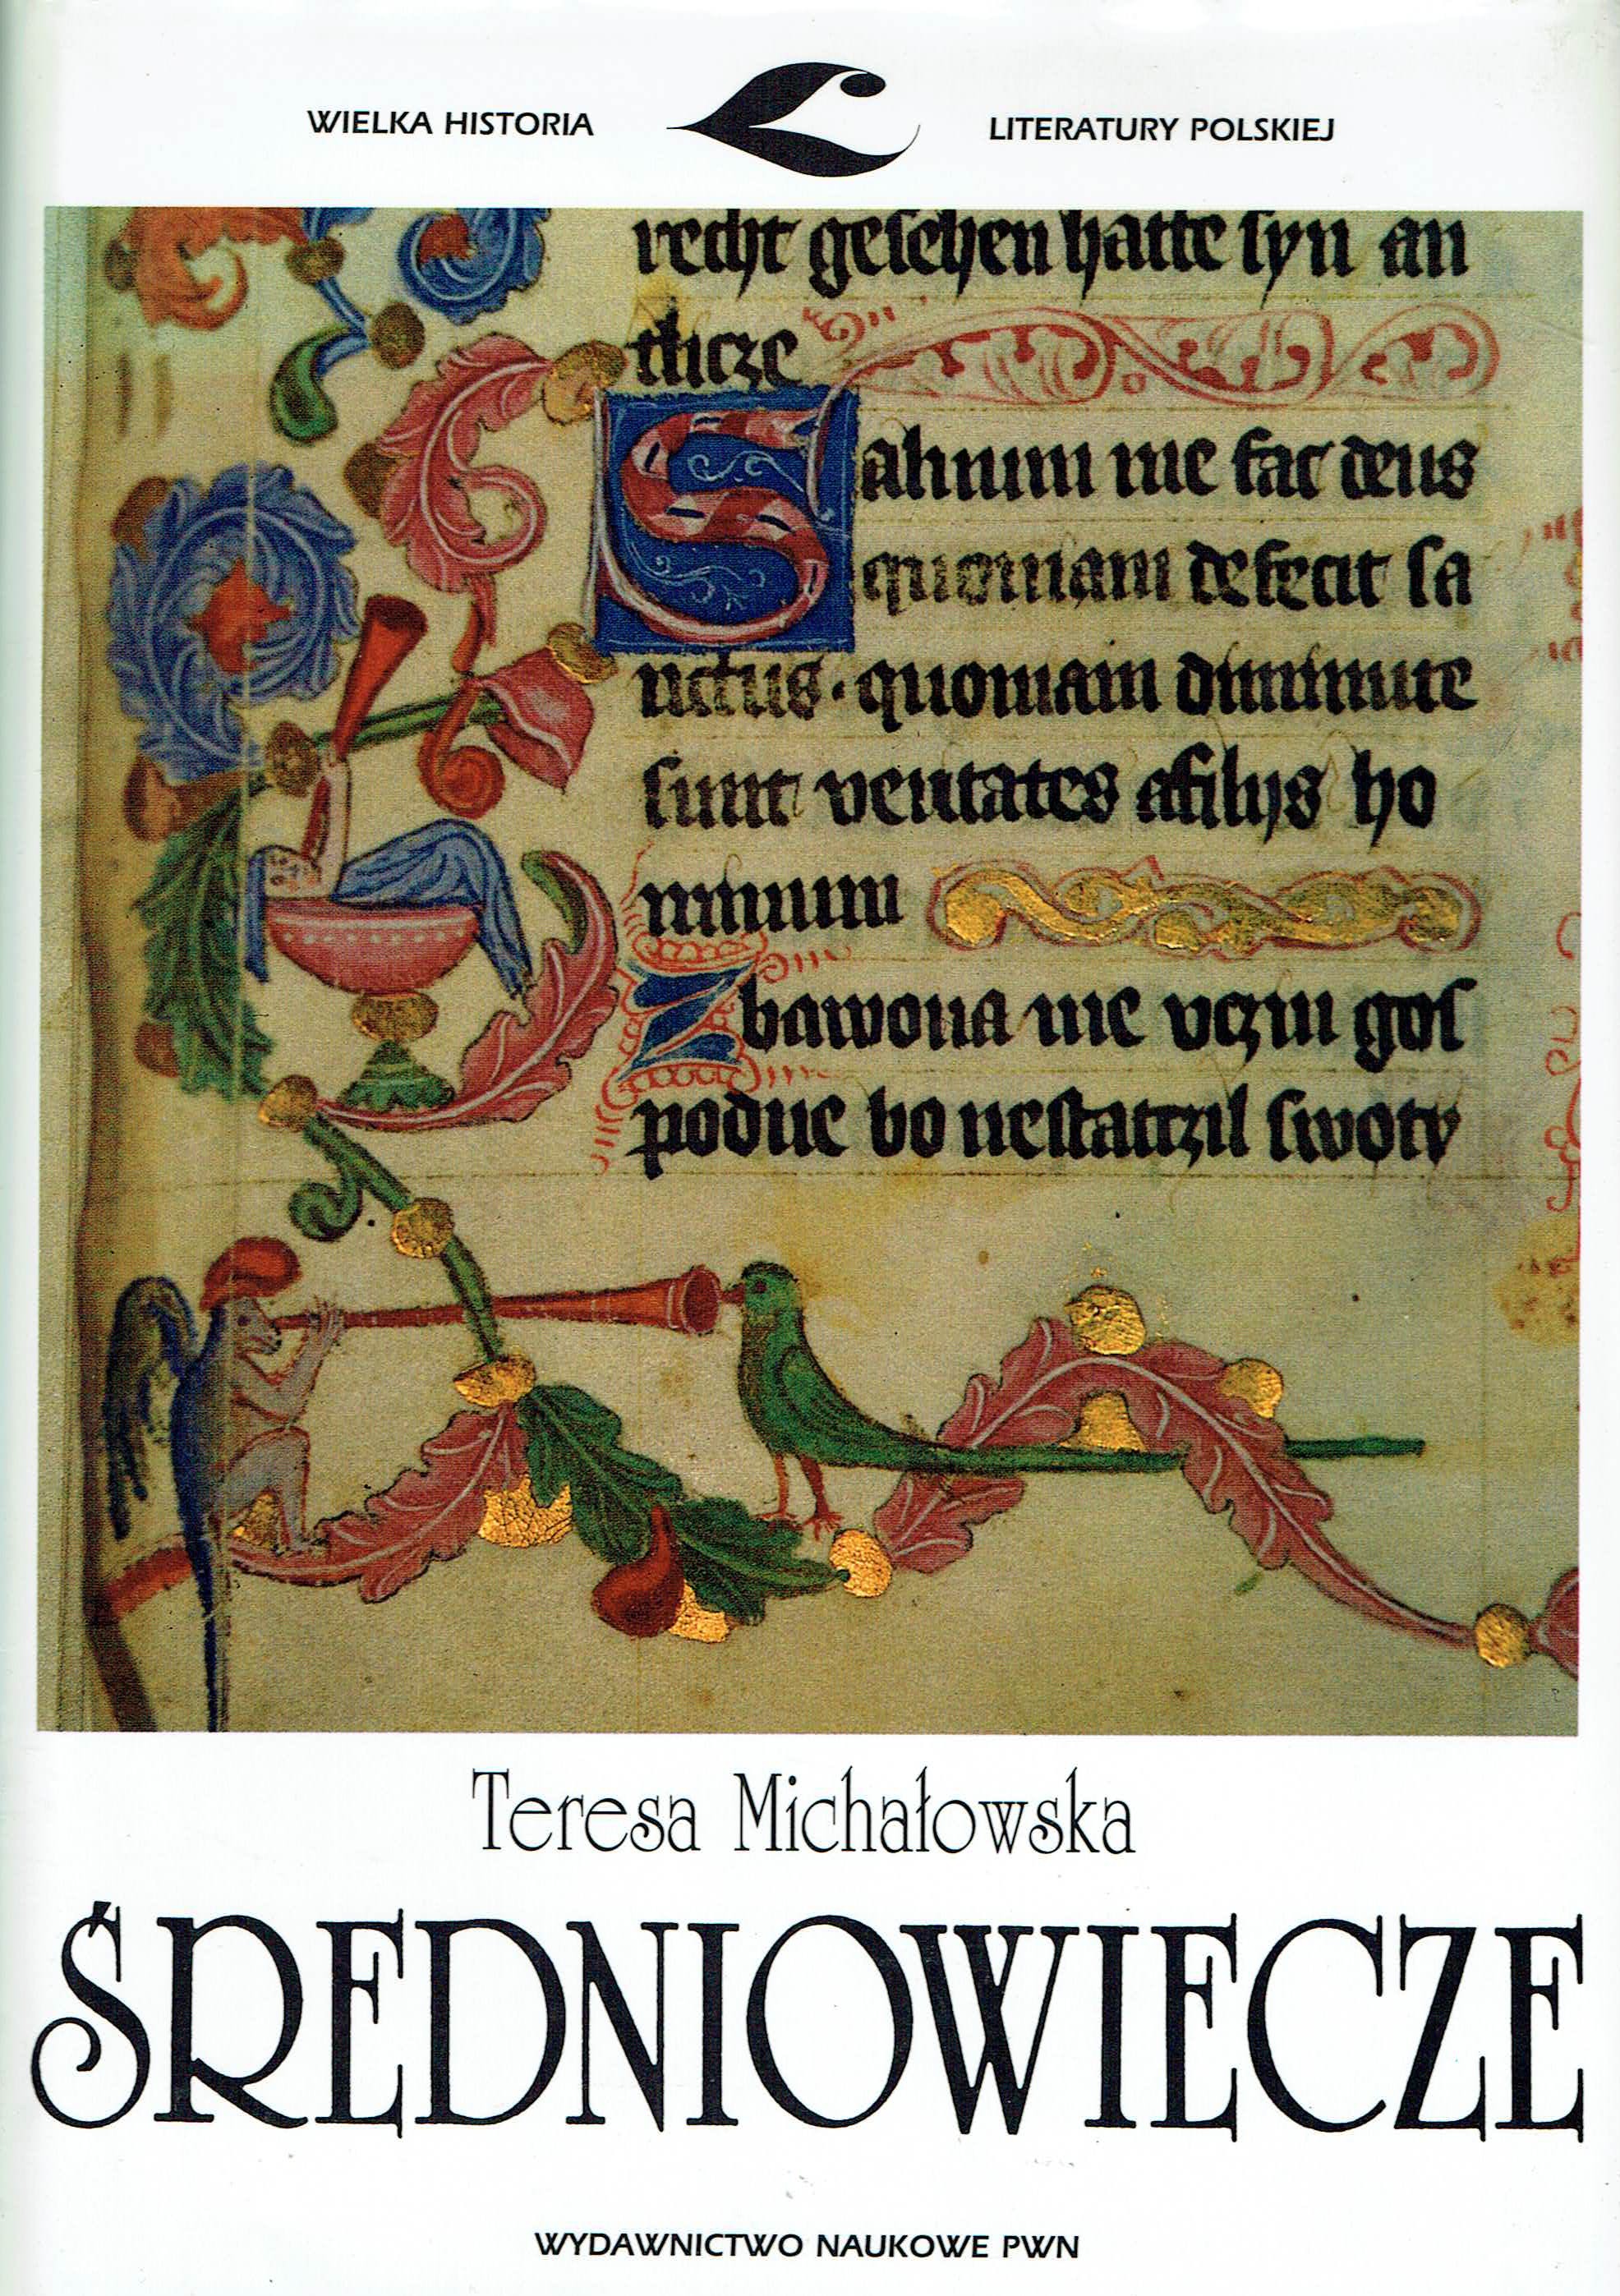 WIELKA HISTORIA LITERATURY POLSKIEJ
recht geschen hatte syn an
tlicze
Saluum me fac deus
quoniam defecit sa
nctus · quoniam diminute
sunt veritates afilijs ho
minum
Zbawona me vczin gos
podne bo nestatczil swøti
Teresa Michałowska
ŚREDNIOWIECZE
WYDAWNICTWO NAUKOWE PWN